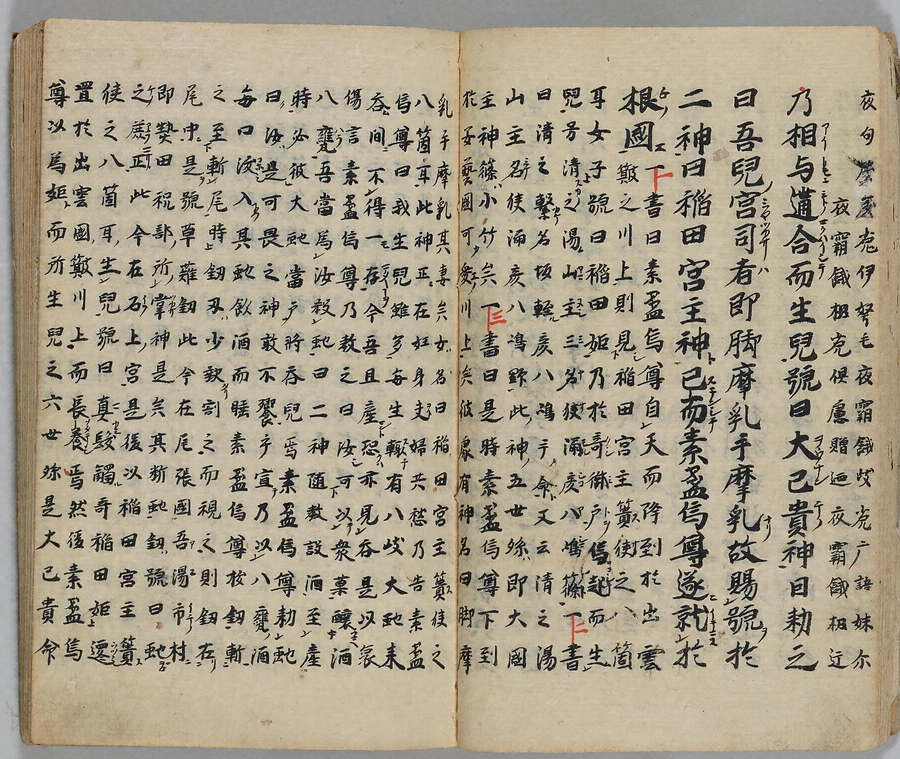 夜句兎伊弩毛夜霸餓岐兎广語妹尓
夜霸餓枳兎倶慮贈廼夜霸餓枳迂
乃相与遘合而生兒號曰大己貴神曰勅之
曰吾兒宮司者即脚摩乳手摩乳故賜號於
二神曰稲田宮主神已而素盞烏尊遂就於
根國一書曰素盞烏尊自天而降到於出雲
簸之川上則見稲田宮主簀狭之八箇
耳女子號曰稲田姫乃於奇御戸為起而生
兒号清之湯山主三名狭漏彦八嶋篠一書
曰清之繋名坂軽彦八嶋手命又云清之湯
山主名狭漏彦八嶋野此神五世孫即大國
主神篠小竹矣二書曰是時素盞烏尊下到
於安藝國可愛川上矣彼處有神名曰脚摩
乳手摩乳其妻矣女名曰稲田宮主簀狭之
八箇耳此神正在妊身夫婦共愁乃告素盞
烏尊曰我生兒雖多每生輙有八岐大虵来
吞間不得一存今吾且產恐亦見吞是以哀
傷言素盞烏尊乃教之曰汝可以衆菓釀酒
八甕吾當為汝殺虵曰二神随教設酒至產
時必彼大虵當戸将吞兒焉素盞烏尊勅虵
曰汝是可畏之神敢不饗乎宣乃以八甕酒
每口沃入其虵飲酒而睡素盞烏尊抜釼斬
之至斬尾時釼刃少缺割之而視之則釼在
尾中是號草薙釼此今在尾張國吾湯市村
即熱田祝部所掌神是矣其断虵釼號曰虵
之麁正此今在石上宮是後以稲田宮主簀
狭之八箇耳生兒號曰真髪觸奇稲田姫遷
置於出雲國簸川上而長養焉然後素盞烏
尊以為妃而所生兒之六世孫是大己貴命